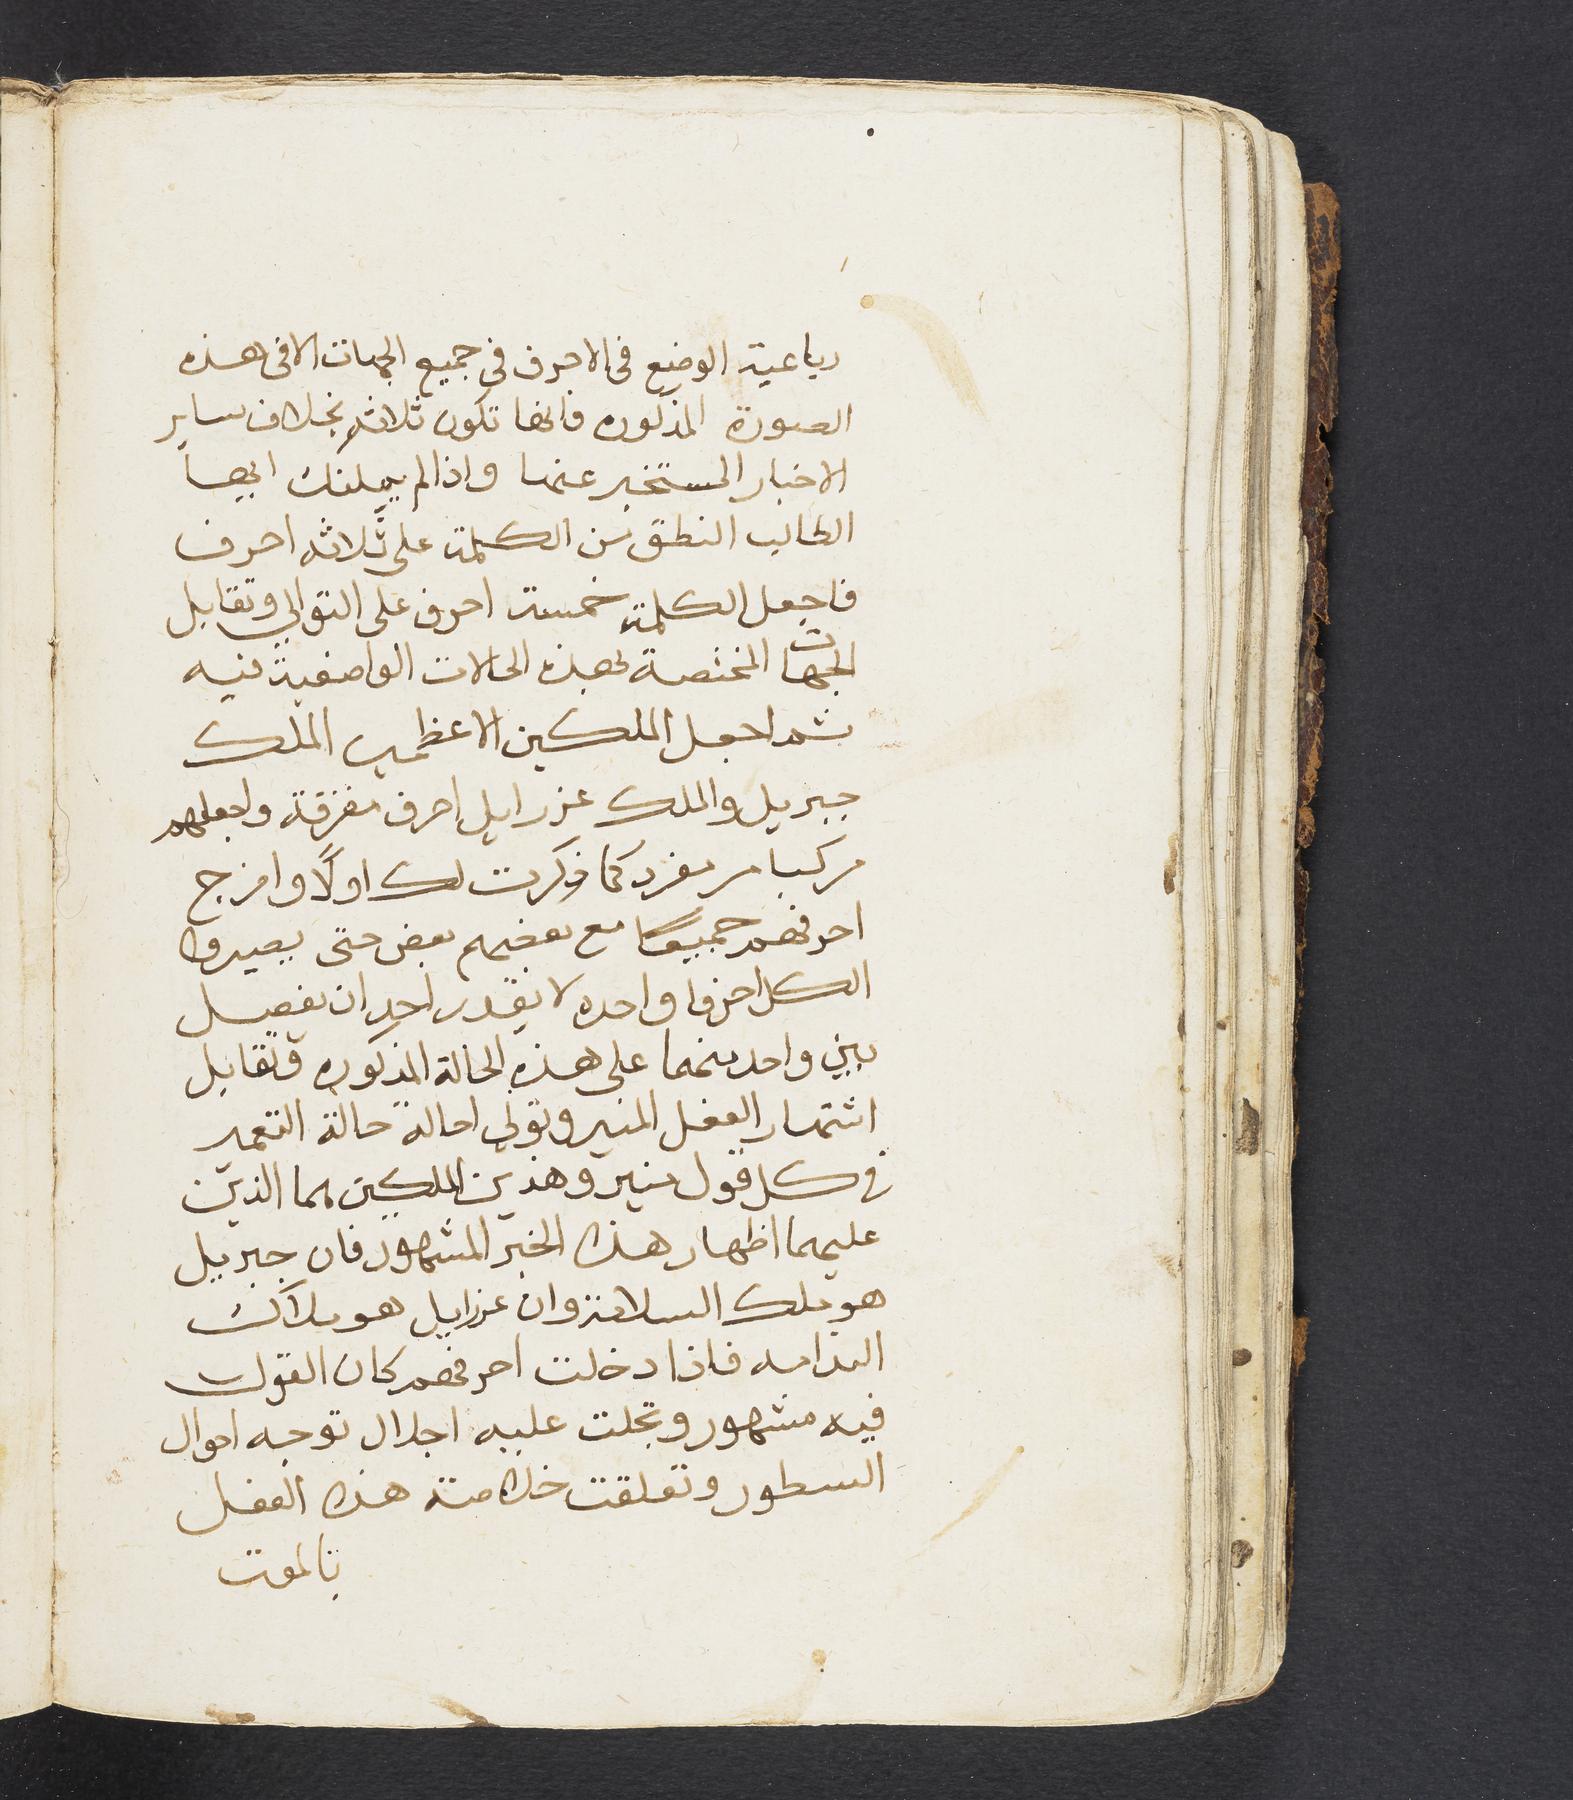 رباعية الوضع فى الاحرف فى جميع الجهات الا فى هذه
الصورة المذكوره فانها تكون ثلاثه بخلاف ساير
الاخبار المستخبر عنها واذا لم يمكنك ايها
الطالب النطق من الكلمة على ثلاثه احرف
فاجعل الكلمة خمسة احرف على التوالي وتقابل
الجهات المختصة بهذه الحالات الواصفية فيه
ثم اجعل الملكين الاعظمين الملك
جبريل والملك عزرايل احرف مفرقة واجعلهم
مركبا مر مفرد كما ذكرت لك اولاً وامزج
احرفهم جميعًا مع بعضهم بعض حتى يصيروا
الكل احرفا واحده لا يقدر احد ان يفصل
بين واحد منهما على هذه الحالة المذكوره وتقابل
اشتهار الفعل المنير وتولي احالة حالة التعمير
فى كل قول منير وهذين الملكين هما الذين
عليهما اظهار هذا الخبر المشهور فان جبريل
هو ملك السلامة وان عزرايل هو ملاك
الندامه فاذا دخلت احرفهم كان القول
فيه مشهور وتجلت عليه اجلال توجه احوال
السطور وتعلقت خلاصة هذا الفعل
بالموت